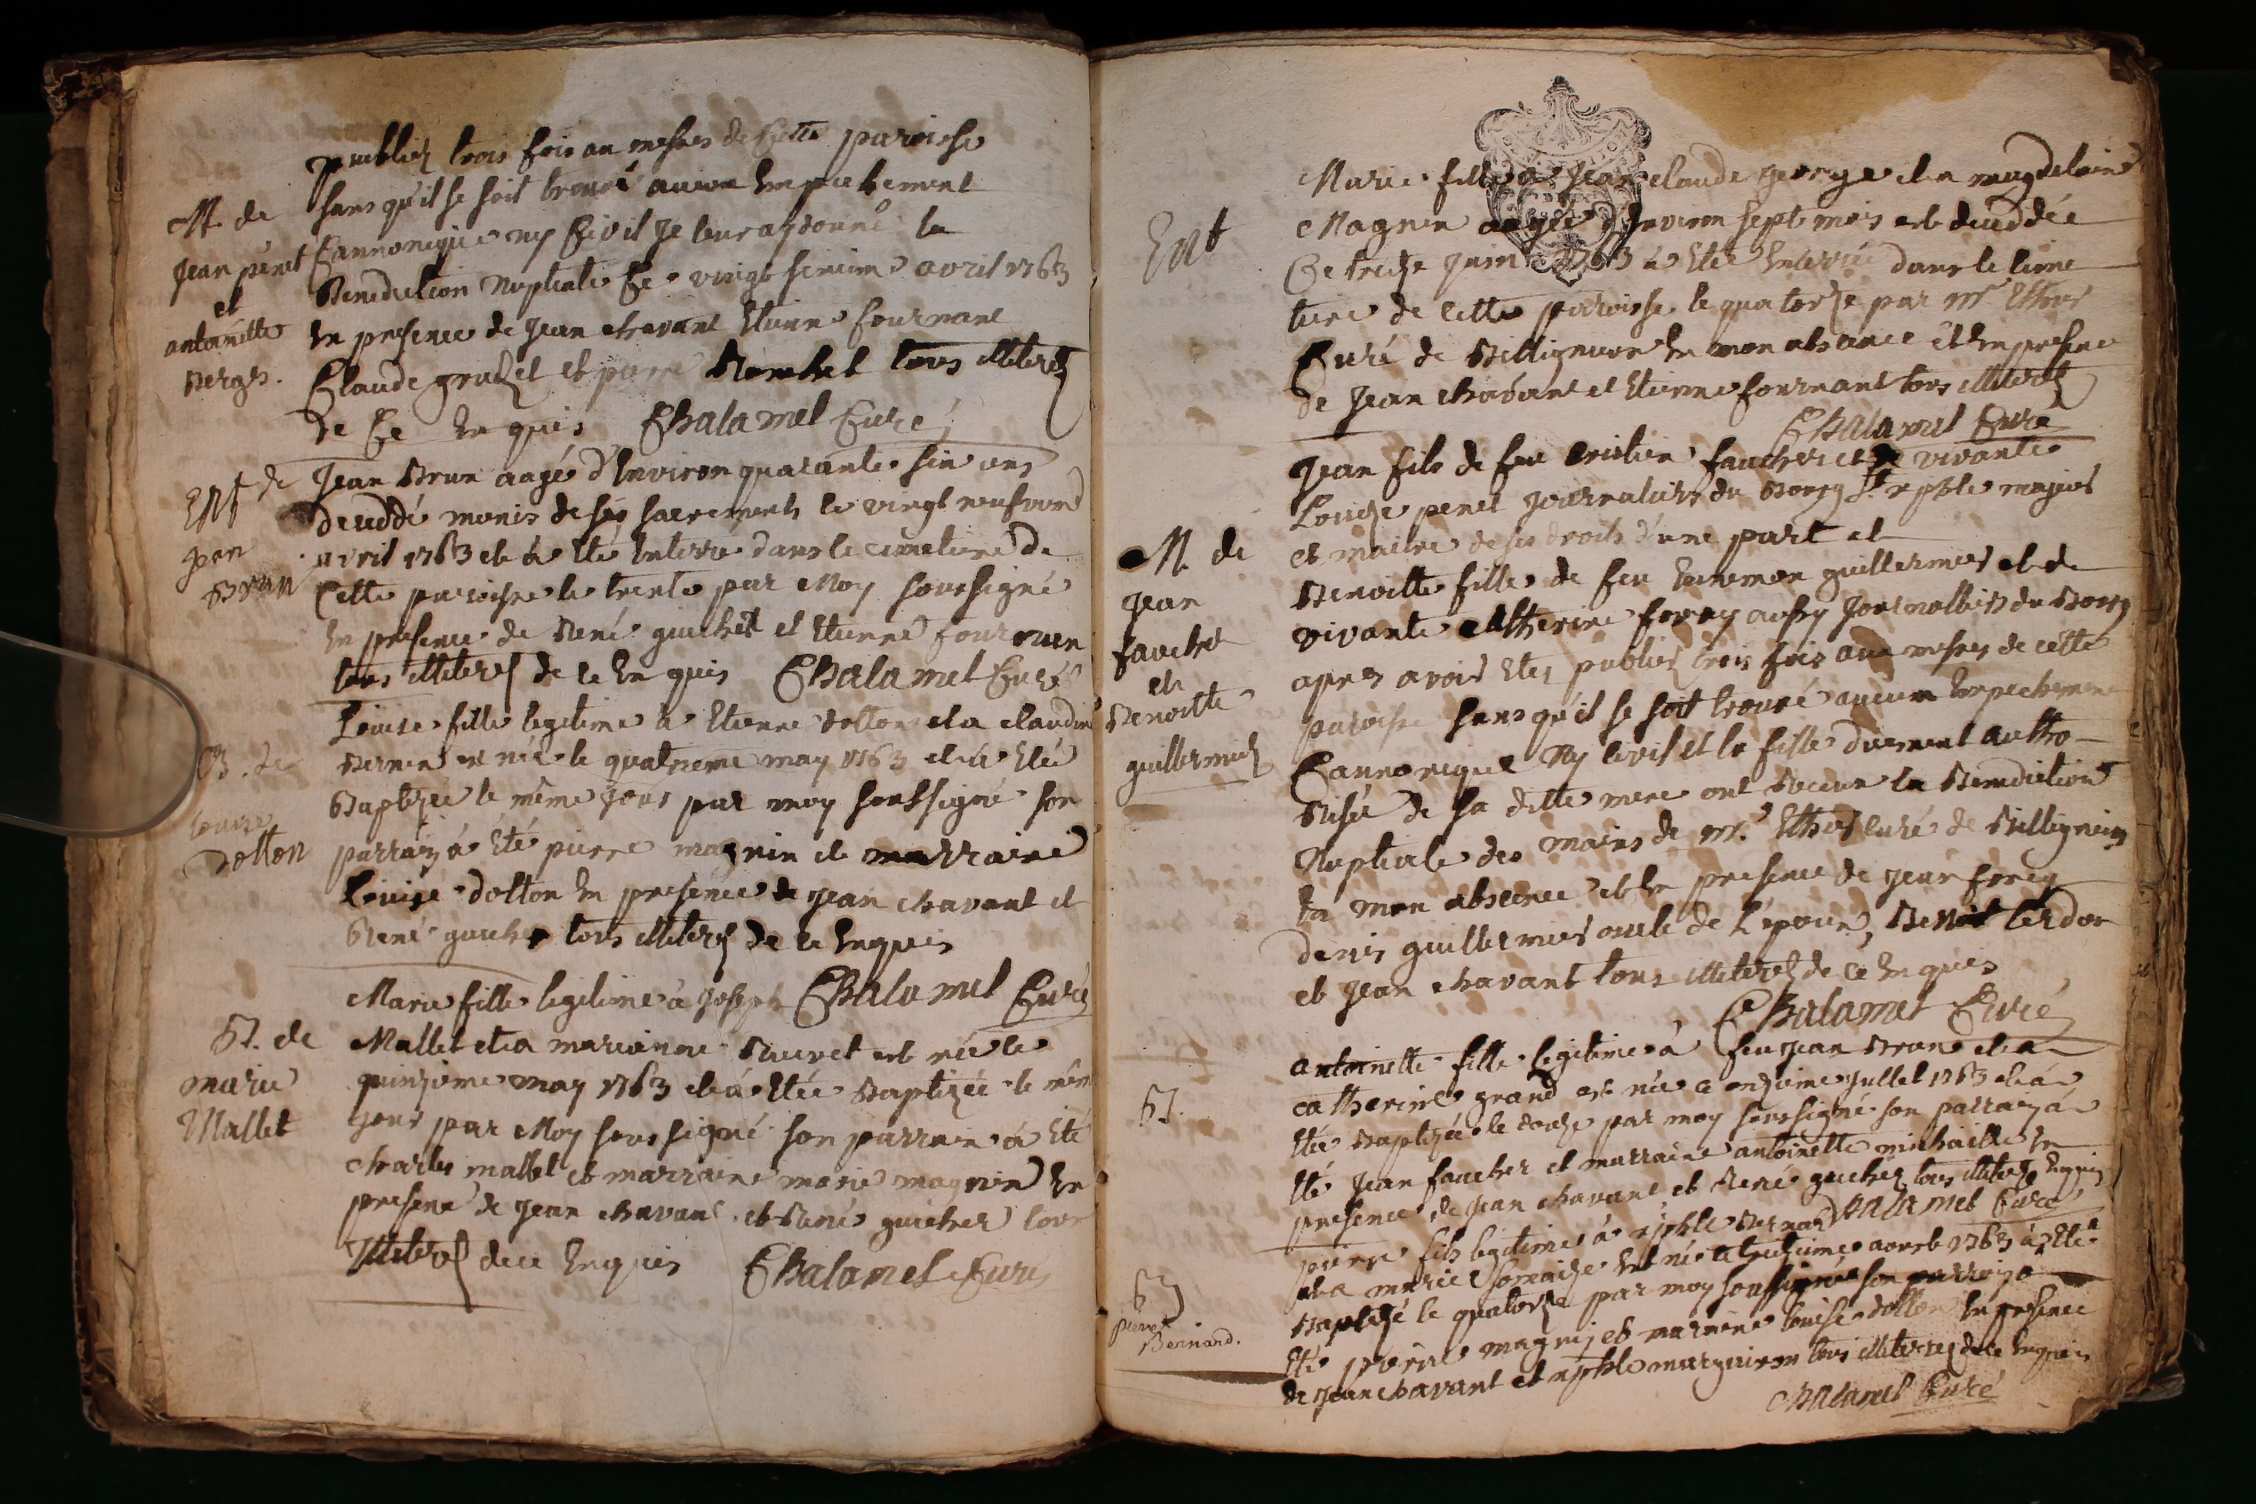 publiez trois fois au messes de Cette paroisse
sans qu'il se soit trouvé aucun Empechement
M. de
Jean penet
et
antoinette
Berger.
Cannonique ny Civil Je leur ay donné la
Benediction Nuptiale Ce vingt sixieme avril 1763
En presence de Jean chavant Etienne fournant
Claude et pierre tous illiterez
de Ce Enquis Chalamel Curé
Ent de
Jean
Brun
Jean Brun aagé d'Environ quarante sin ans
deceddé munis de ses sacrements le vingt neufvieme
avril 1763 et à eté Enterré dans le cimetiere de
Cette paroisse le trente par Moy soussigné
En presence de René guichet et Etienne fournan
tous illiterez de ce Enquis Chalamel Curé
B. de
Louise
dotton
Louise fille legitime à Etienne dotton et a claudine
Bernin est née le quatrieme may 1763 et à Eté
Baptizée le même Jour par moy soussigné son
parrain à Eté pierre magnin et marraine
Louise dotton En presence de Jean chavant et
René guicher tous illiterez de ce Enquis
Chalamel Curé
B. de
marie
Mallet
Marie fille legitime à Joseph
Mallet et a marianne est née le
quinzieme may 1763 et à Etée Baptizée le mêm
Jour par Moy soussigné son parrain à Eté
charles mallet et marraine marie magnin En
presence de Jean chavant et René guicher tous
illiterez de ce Enquis Chalamel Curé
Ent
Marie fille à Jean claude george et a magdelaine
Magnin aagée d'Environ sept mois est deceddée
Ce treize Juin 1763 à Etée Enterrée dans le cime
tiere de Cette paroisse le quatorze par Mr
Curé de Billignieu En mon absance et En presence
de Jean chavant et Etienne fournant tous illiterez
Chalamel Curé
M. de
Jean
faucher
et
Benoitte
guillermier
Jean fils de feu faucher et de vivante
Louize penet Journaliers du Bourg St majeur
et maitre de ses droits d'une part et
Benoitte fille de feu guillermier et de
vivante Catherine foray aussy Journalliers du Bourg
apres avoir Etez publiez trois fois aux messes de cette
paroisse sans qu'il se soit trouvé aucun Empechement
Cannonique Ny Civil et la fille duement autho
risée de sa ditte mere ont Receu la Benediction
Nuptiale des mains de Mr. curé de Billignieu
En mon absence et En presence de Jean forey
denis guillermier oncle de L'epouse, Benoit
et Jean chavant tous illiterez de ce Enquis
Chalamel Curé
B.
antoinette fille legitime à feu Jean Brun et a
catherine grand est née ce onzieme Juillet 1763 et à
Etée Baptizée le douze par moy soussigné son parrain à
Eté Jean faucher et marraine antoinette En
presence de Jean chavant et René guicher tous illiterez Enquis
Chalamel Curé
B
pierre
Bernard.
pierre fils legitime à Bernard
et a marie est né le treizieme aoust 1763 à Eté
Baptizé le quatorze par moy soussigné son parrain à
Eté pierre magnin et marraine louise dotton En presence
de Jean chavant et tous illiterez de ce Enquis
Chalamel Curé